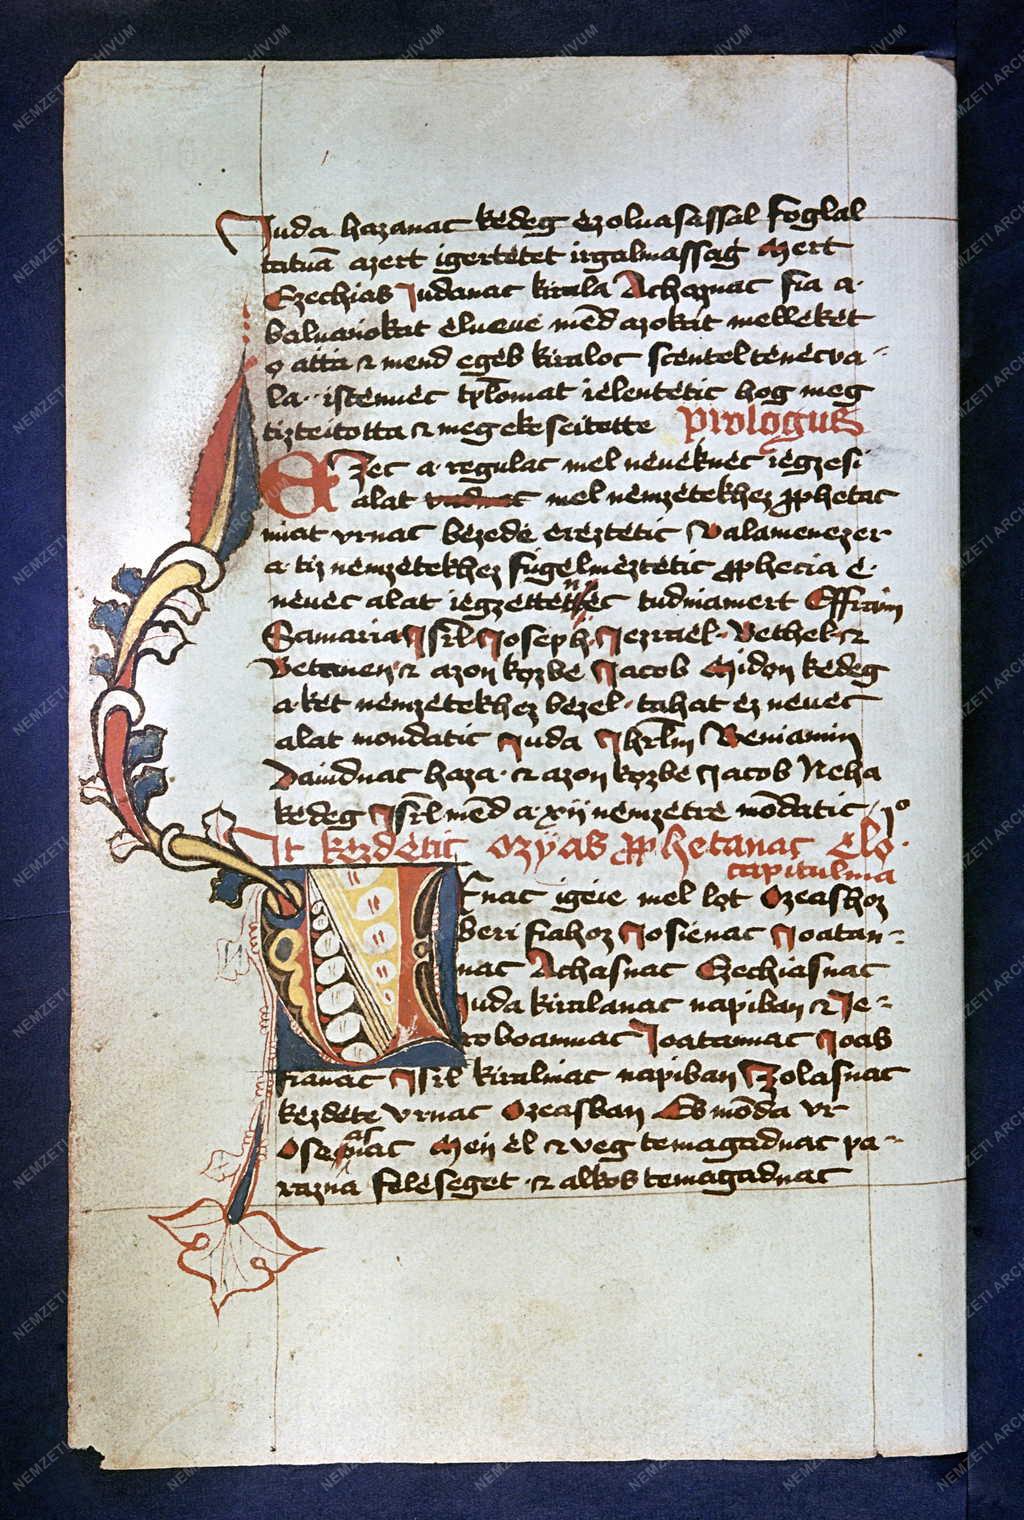 Iuda hazanac kèdeg èzoluasassal foglal
tatuā azert igertètet irgalmassag Mert
Ezechias Iudanac kiraľa Achaznac fia a·
baluańokat èlueue mēd azokat melleket
o atta ⁊ mend egèb kiraloc scentèltènècva-
la· istennèc tp̄lomat ièlentètic hog meg
tizteitotta ⁊ megekèseitotte prologus
EZec a· regulac mel nèuèknèc iegzesi
alat mel nèmzètekhez p̱phetac
miat vrnac bezedè èrèztètic Valamenèzer
a· tiz nèmzètekhez fúgèlmèztètic p̱phecia è·
nèuèc alat iègzèttètnèc tudniamert Effraim
Samaria Isrl̄ Iosèph· Iezraèl· Bethèl· ⁊
Betauen ⁊ azon kǫzbè Iacob Midon kèdeg
a· kèt nèmzètekhez bèzel· tahat èz nèuèc
alat mondatic Iuda Ihrl̄m Beniamin
Dauidnac haza· ⁊ azon kǫzbè Iacob Neha
kèdeg Isrl̄ mēd a· xij nèmzètrè mōdatic
It kèzdètic ozÿas p̱phetanac èlo·
capitulma
VRnac igèie mel lǫt Ozeashoz
Bèri fiahoz Iosiènac Ioatan-
nac Achasnac Ezechiasnac
Iuda kiralanac napiban ⁊ Ie-
roboamnac Ioatannac Ioas
fianac Isrl̄ kiralnac napiban Zolasnac
kèzdète vrnac Ozeasban Es mōda vr
Oseasnac Mèń èl ⁊ vèg tèmagadnac pa-
razna fèlèseget· ⁊ alkos tèmagadnac
NEMZETI ARCHÍVUM